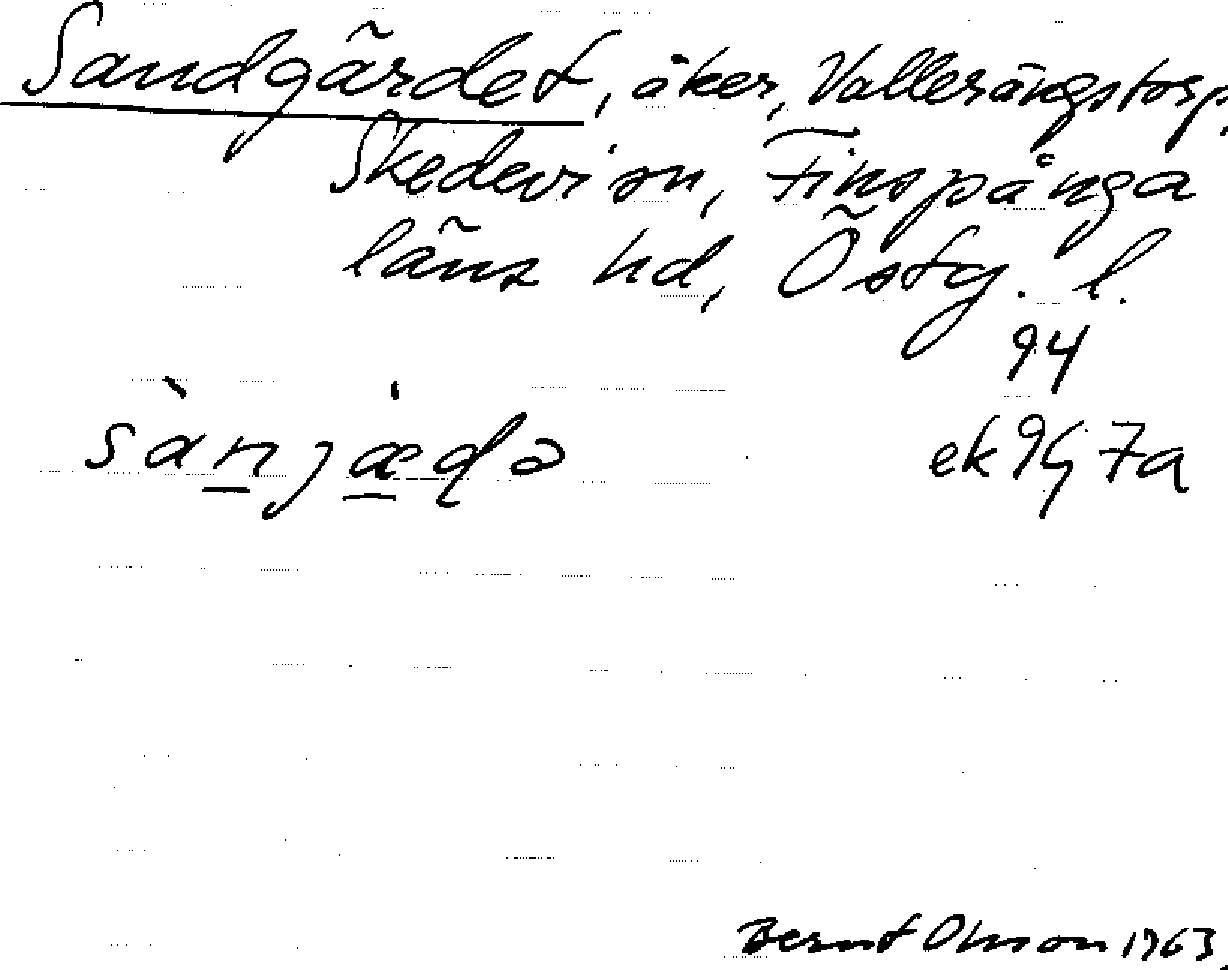 Sandgärdet, åker, Vallerängstorp,
Skedevi sn, Finspånga
läns hd, Östg. l.
94
sànjæ̀ḍə ek 9G 7a
Bernt Olsson 1963.